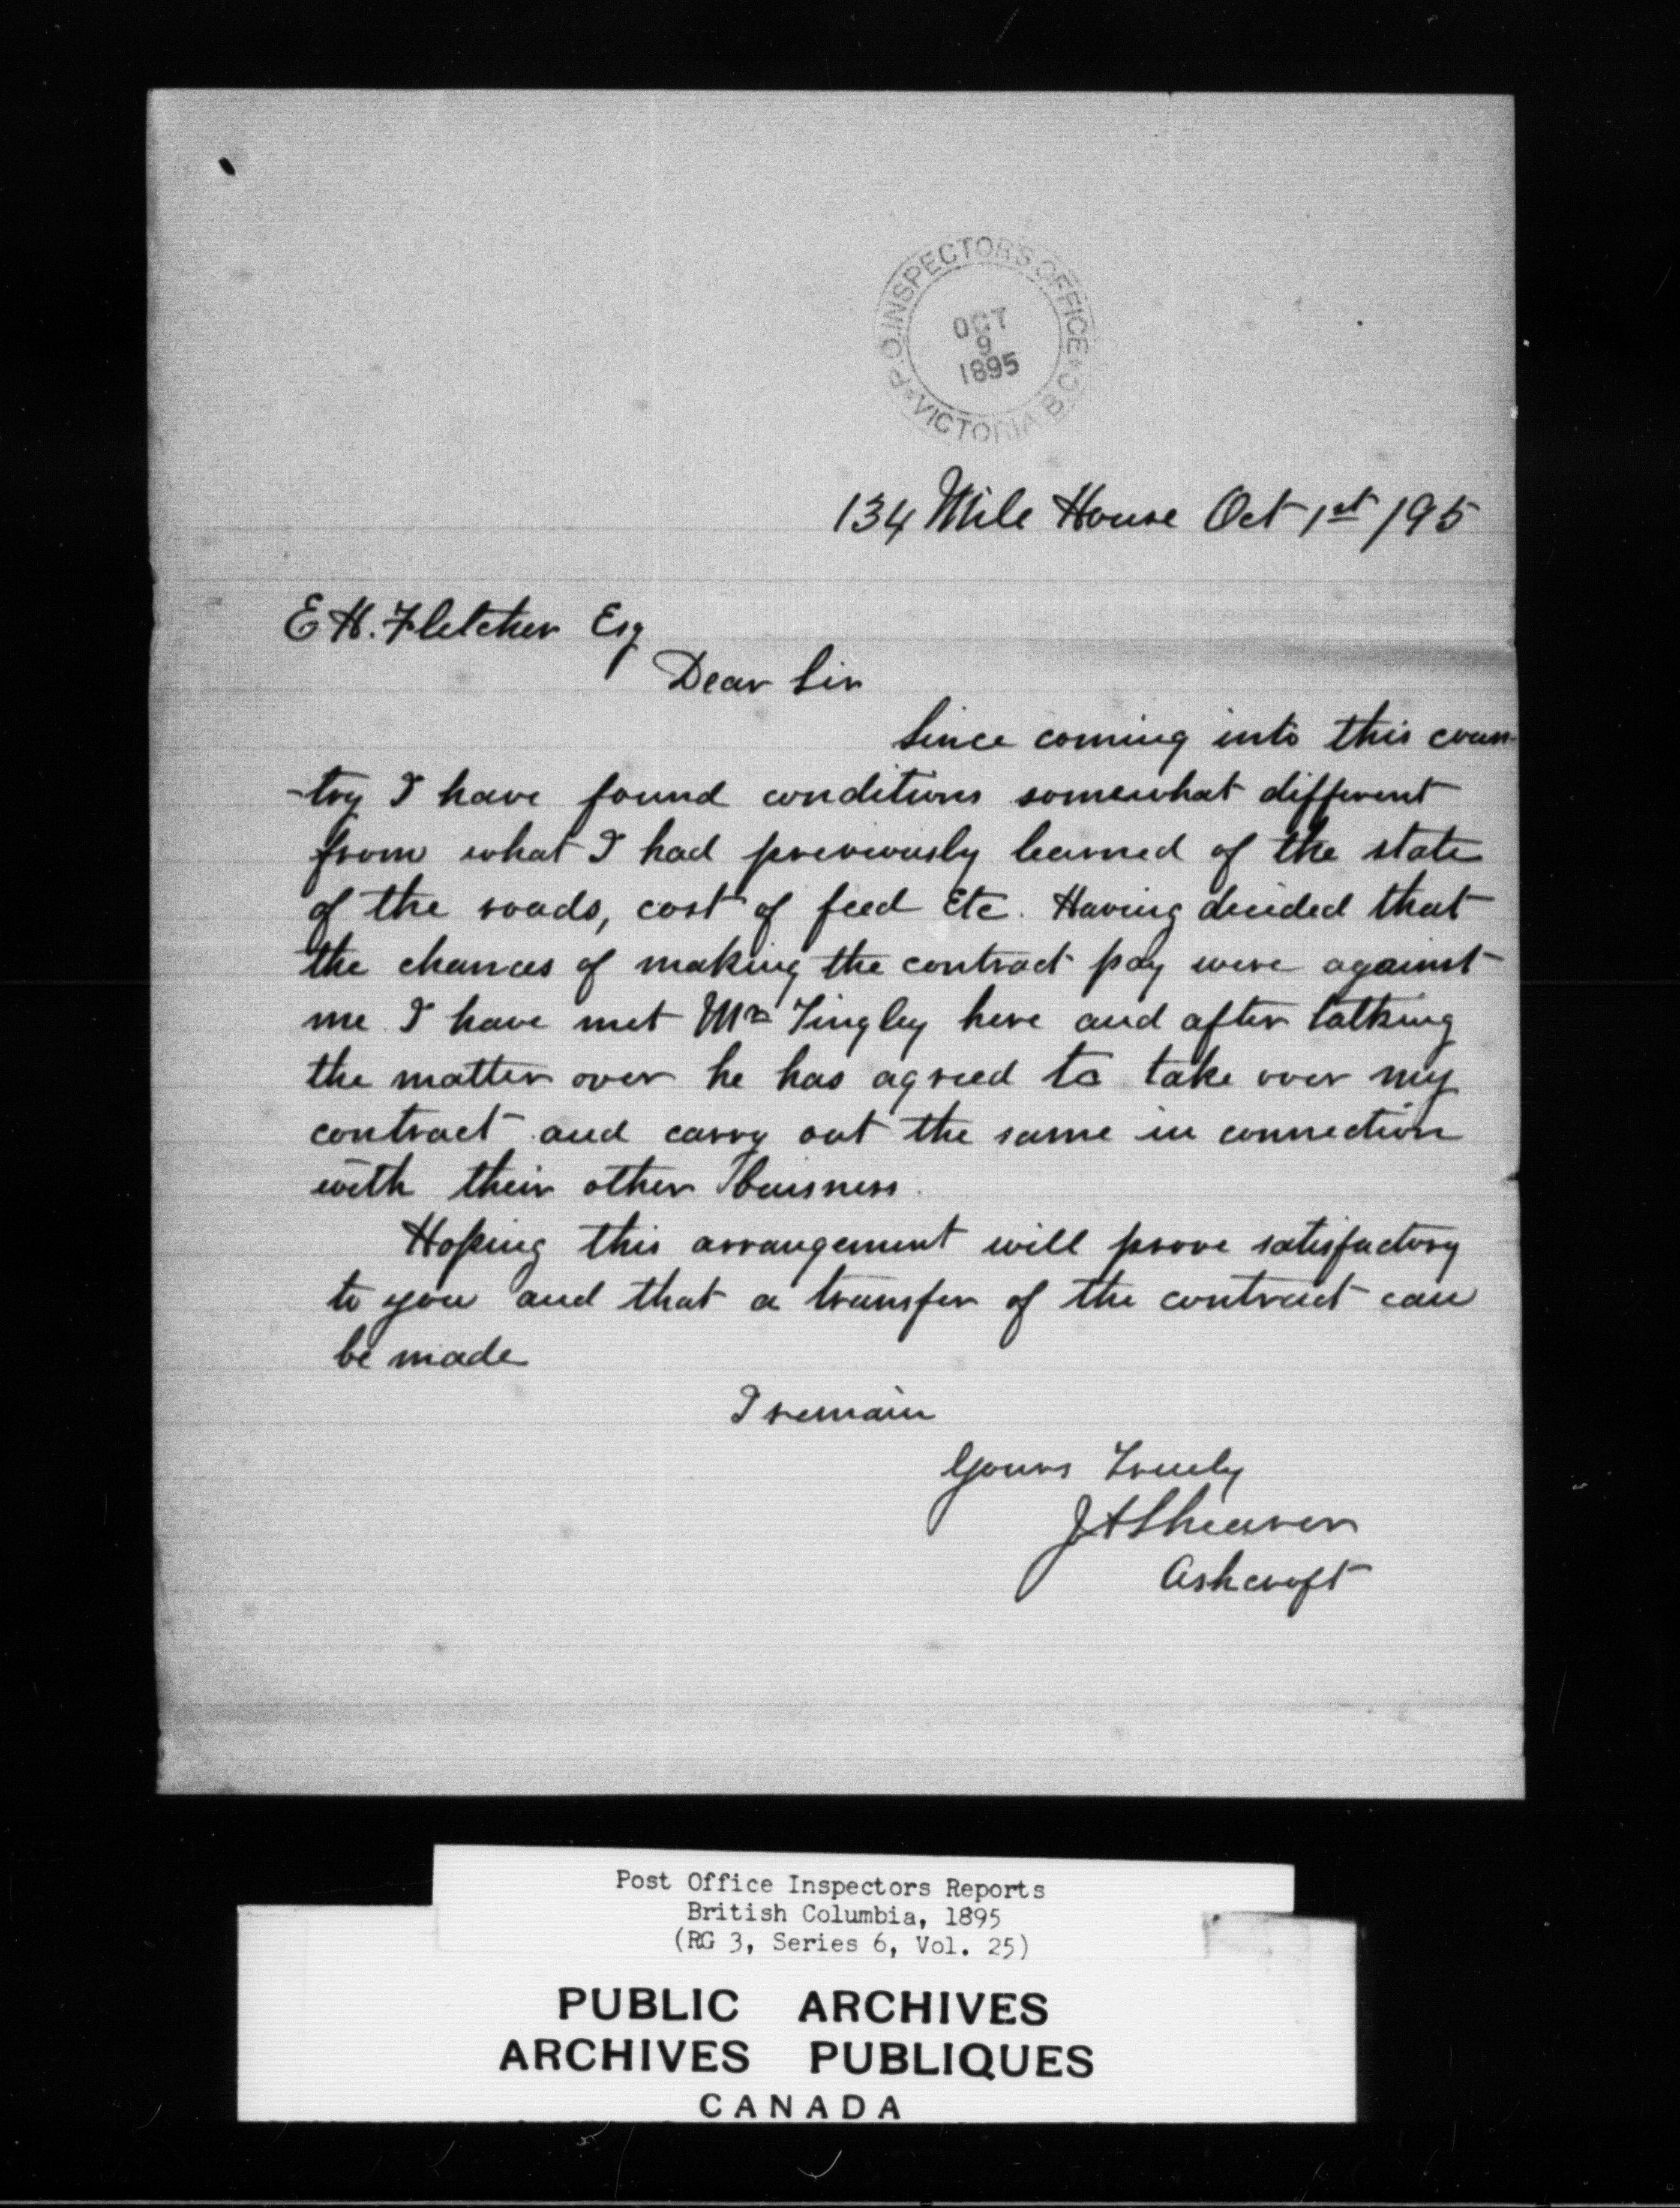 P.O. INSPECTOR'S OFFICE
OCT
9
1895
VICTORIA B.C.
134 Mile House Oct 1st /95
E H. Fletcher Esq
Dear Sir
Since coming into this coun-
-try I have found conditions somewhat different
from what I had previously learned of the state
of the roads, cost of feed Etc. Having decided that
the chances of making the contract pay were against
me I have met Mr Tingley here and after talking
the matter over he has agreed to take over my
contract and carry out the same in connection
with their other buisness.
Hoping this arrangement will prove satisfactory
to you and that a transfer of the contract can
be made
I remain
Yours Truely
J A Shearer
Ashcroft
Post Office Inspectors Reports
British Columbia, 1895
(RG 3, Series 6, Vol. 25)
PUBLIC ARCHIVES
ARCHIVES PUBLIQUES
CANADA